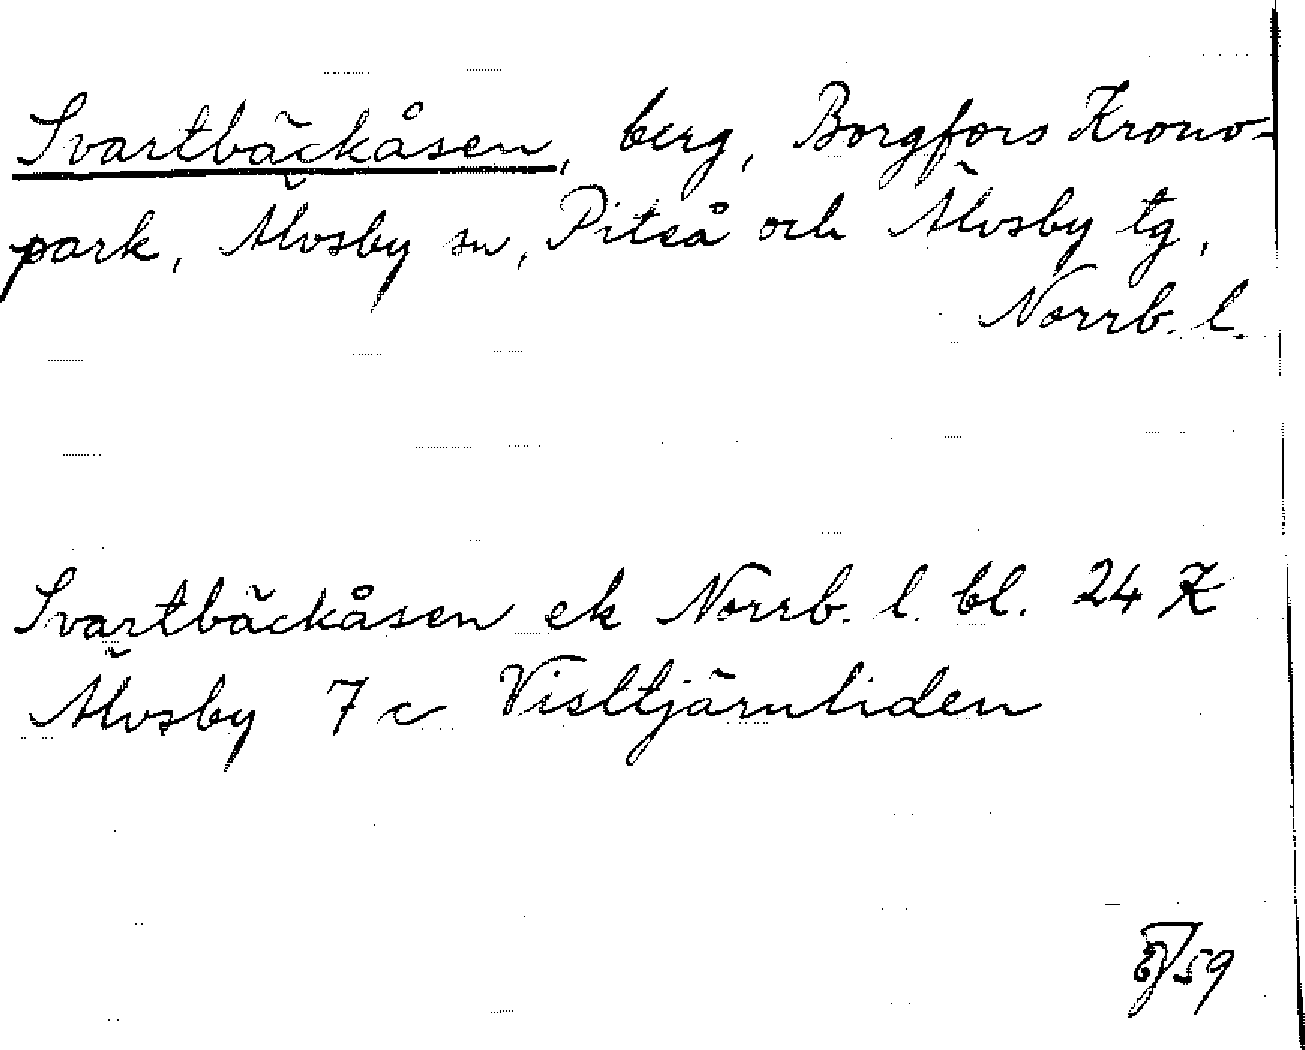 Svartbäckåsen, berg, Borgfors Krono-
park, Älvsby sn, Piteå och Älvsby tg,
Norrb. l.
Svartbäckåsen ek Norrb. l. bl. 24 K
Älvsby 7 c Visltjärnliden
59